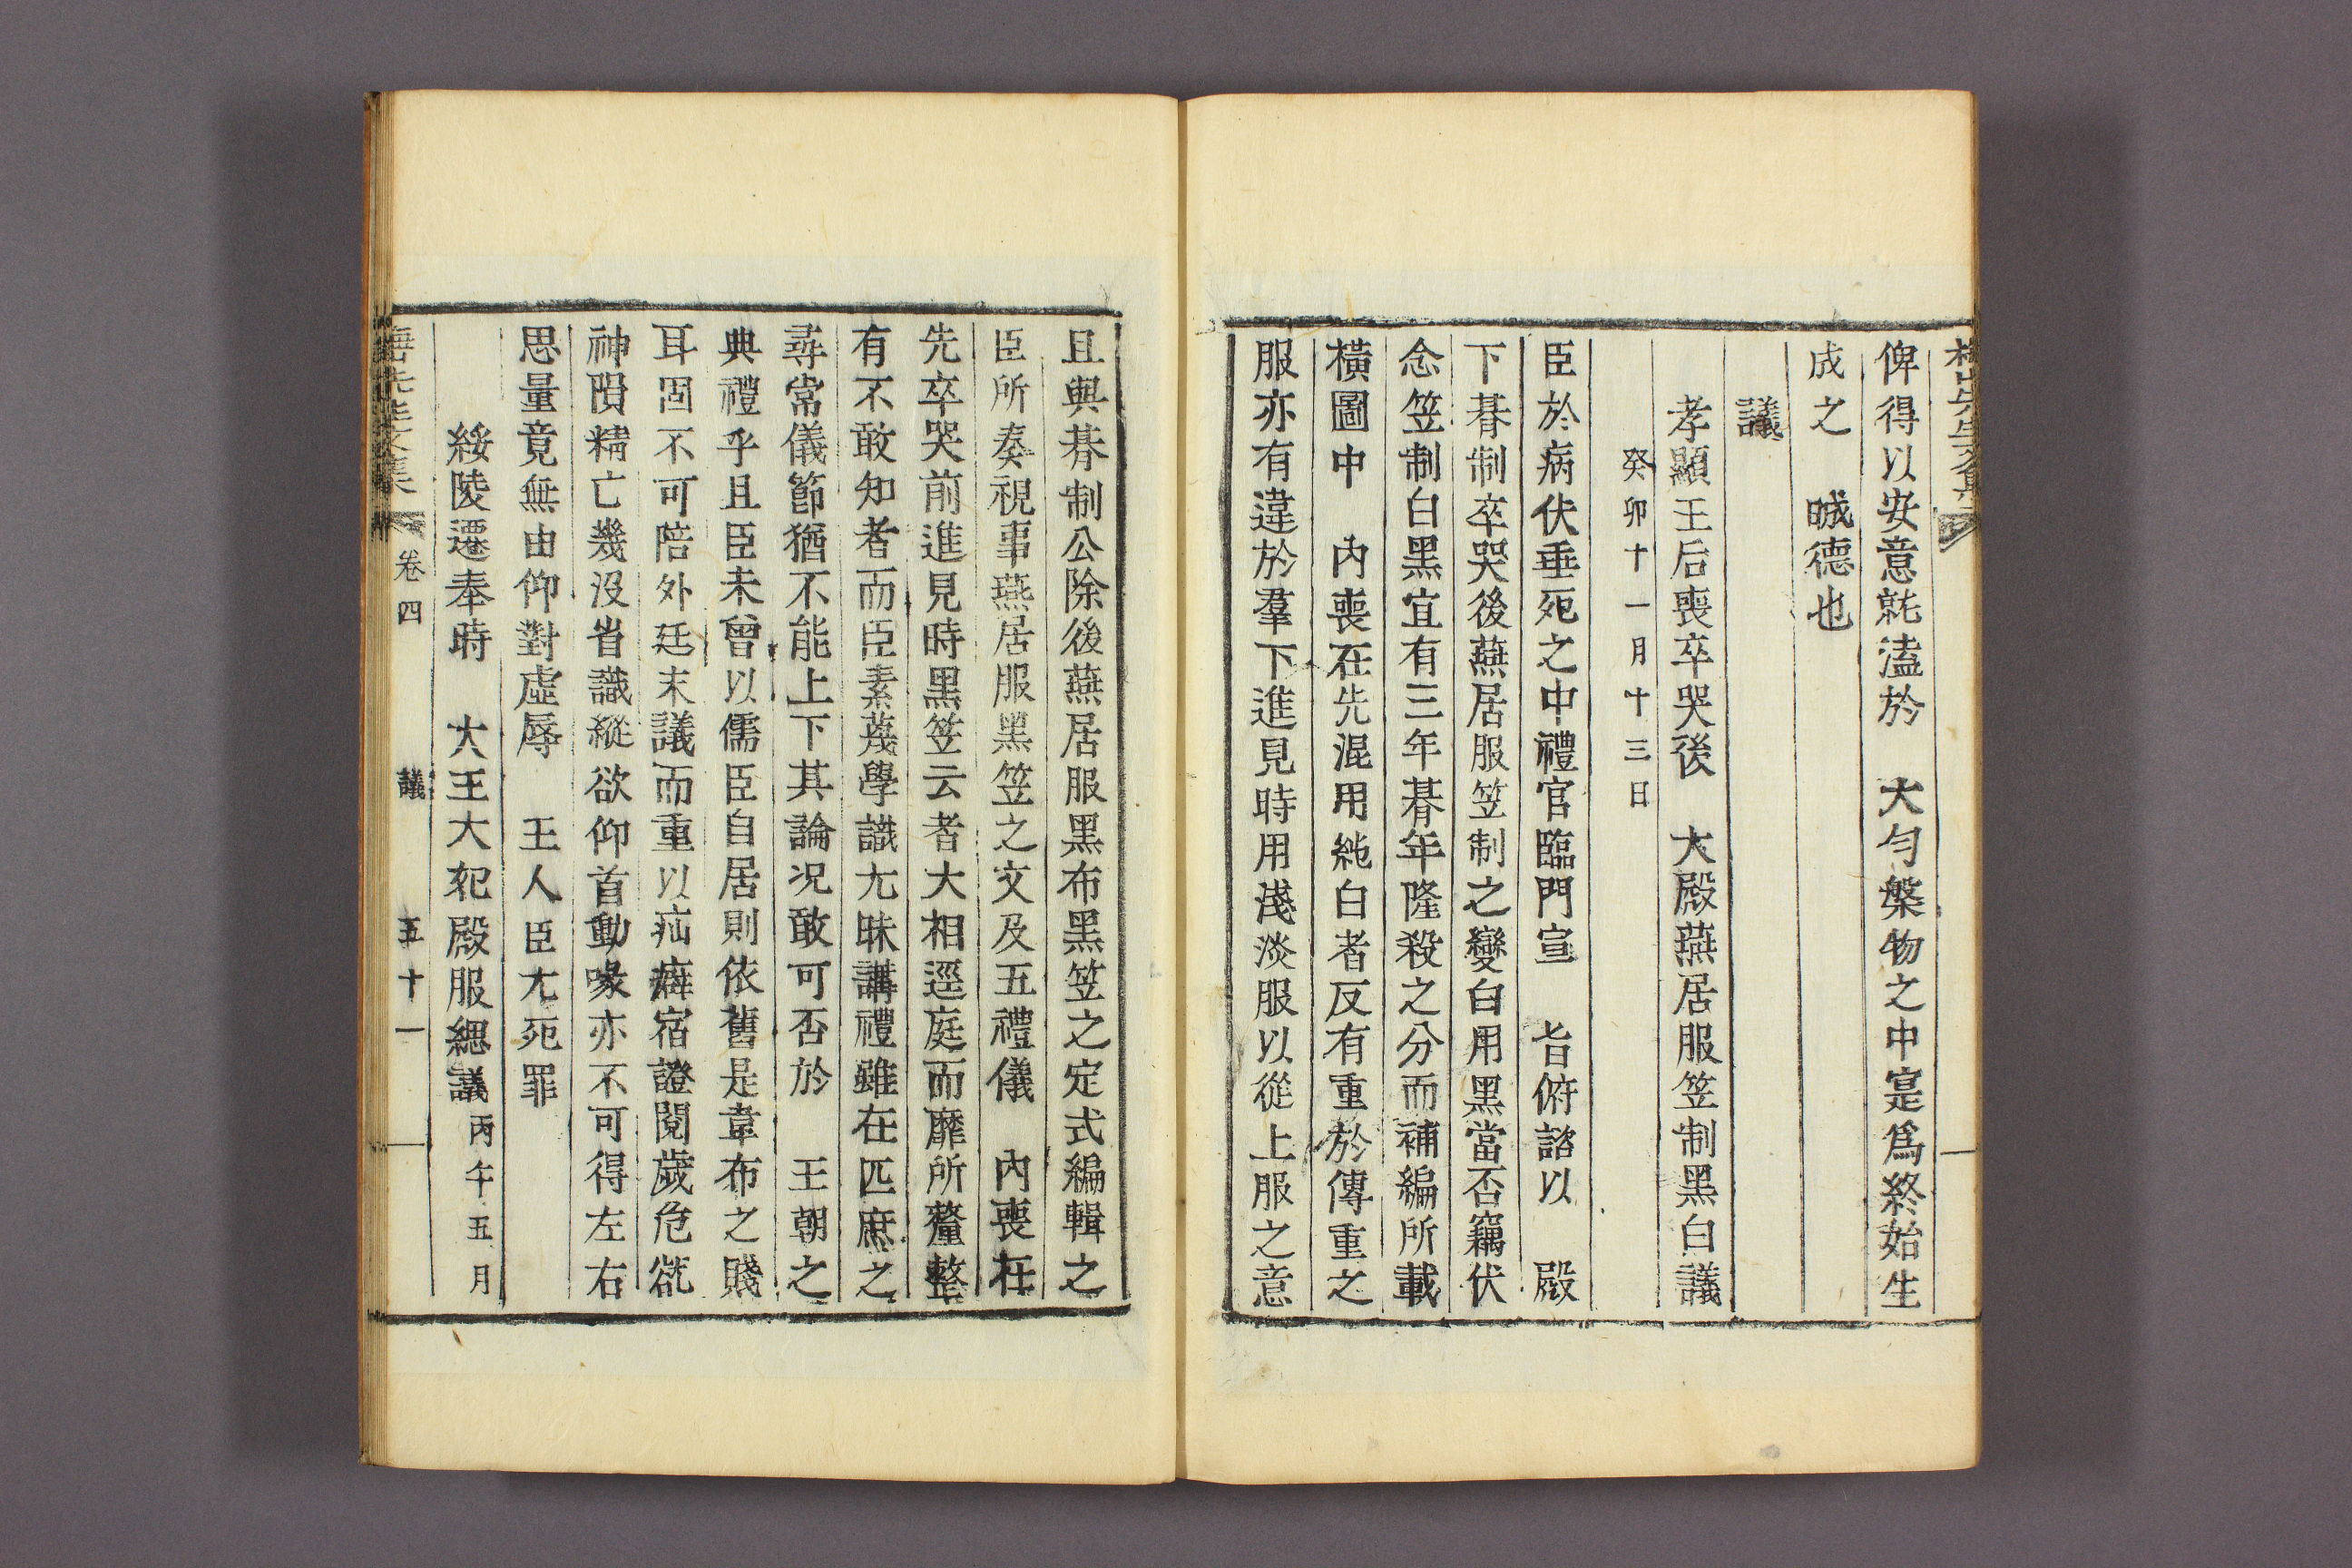 梅山先生文集
俾得以安意就溘於　大勻槃物之中寔爲終始生
成之　晠德也
議
孝顯王后喪卒哭後　大殿燕居服笠制黑白議
癸卯十一月十三日
臣於病伏垂死之中禮官臨門宣　旨俯諮以　殿
下朞制卒哭後燕居服笠制之變白用黑當否竊伏
念笠制白黑宜有三年朞年隆殺之分而補編所載
橫圖中　內喪在先混用純白者反有重於傳重之
服亦有違於羣下進見時用淺淡服以從上服之意
且與朞制公除後燕居服黑布黑笠之定式編輯之
臣所奏視事燕居服黑笠之文及五禮儀　內喪在
先卒哭前進見時黑笠云者大相逕庭而靡所釐整
有不敢知者而臣素蔑學識尢昧講禮雖在匹庶之
尋常儀節猶不能上下其論况敢可否於　王朝之
典禮乎且臣未曾以儒臣自居則依舊是韋布之賤
耳固不可陪外廷末議而重以疝癖宿證閱歲危㞃
神隕精亡幾沒省識縱欲仰首動喙亦不可得左右
思量竟無由仰對虛辱　王人臣尢死罪
綏陵遷奉時　大王大妃殿服緦議丙午五月
梅山先生文集　卷四　議　五十一